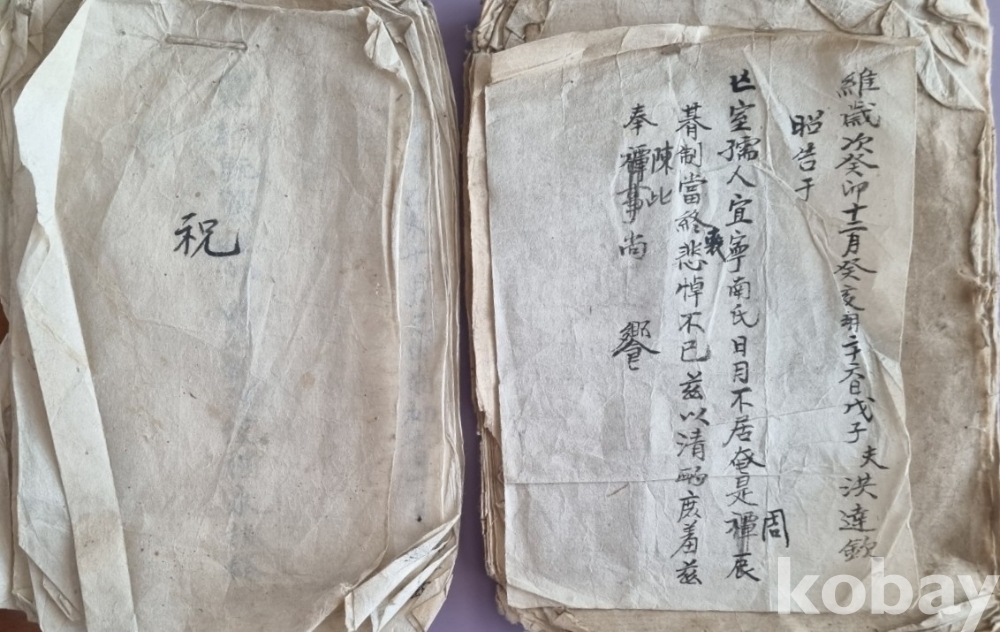 祝
維歲次癸卯十二月癸亥朔二十六日戊子 夫 洪達欽
昭告于
亡室孺人宜寧南氏日月不居奄是禫辰
周
朞制當終悲悼不已茲以清酌庶羞茲
喪
陳此
奉禫事尚 饗
kobay